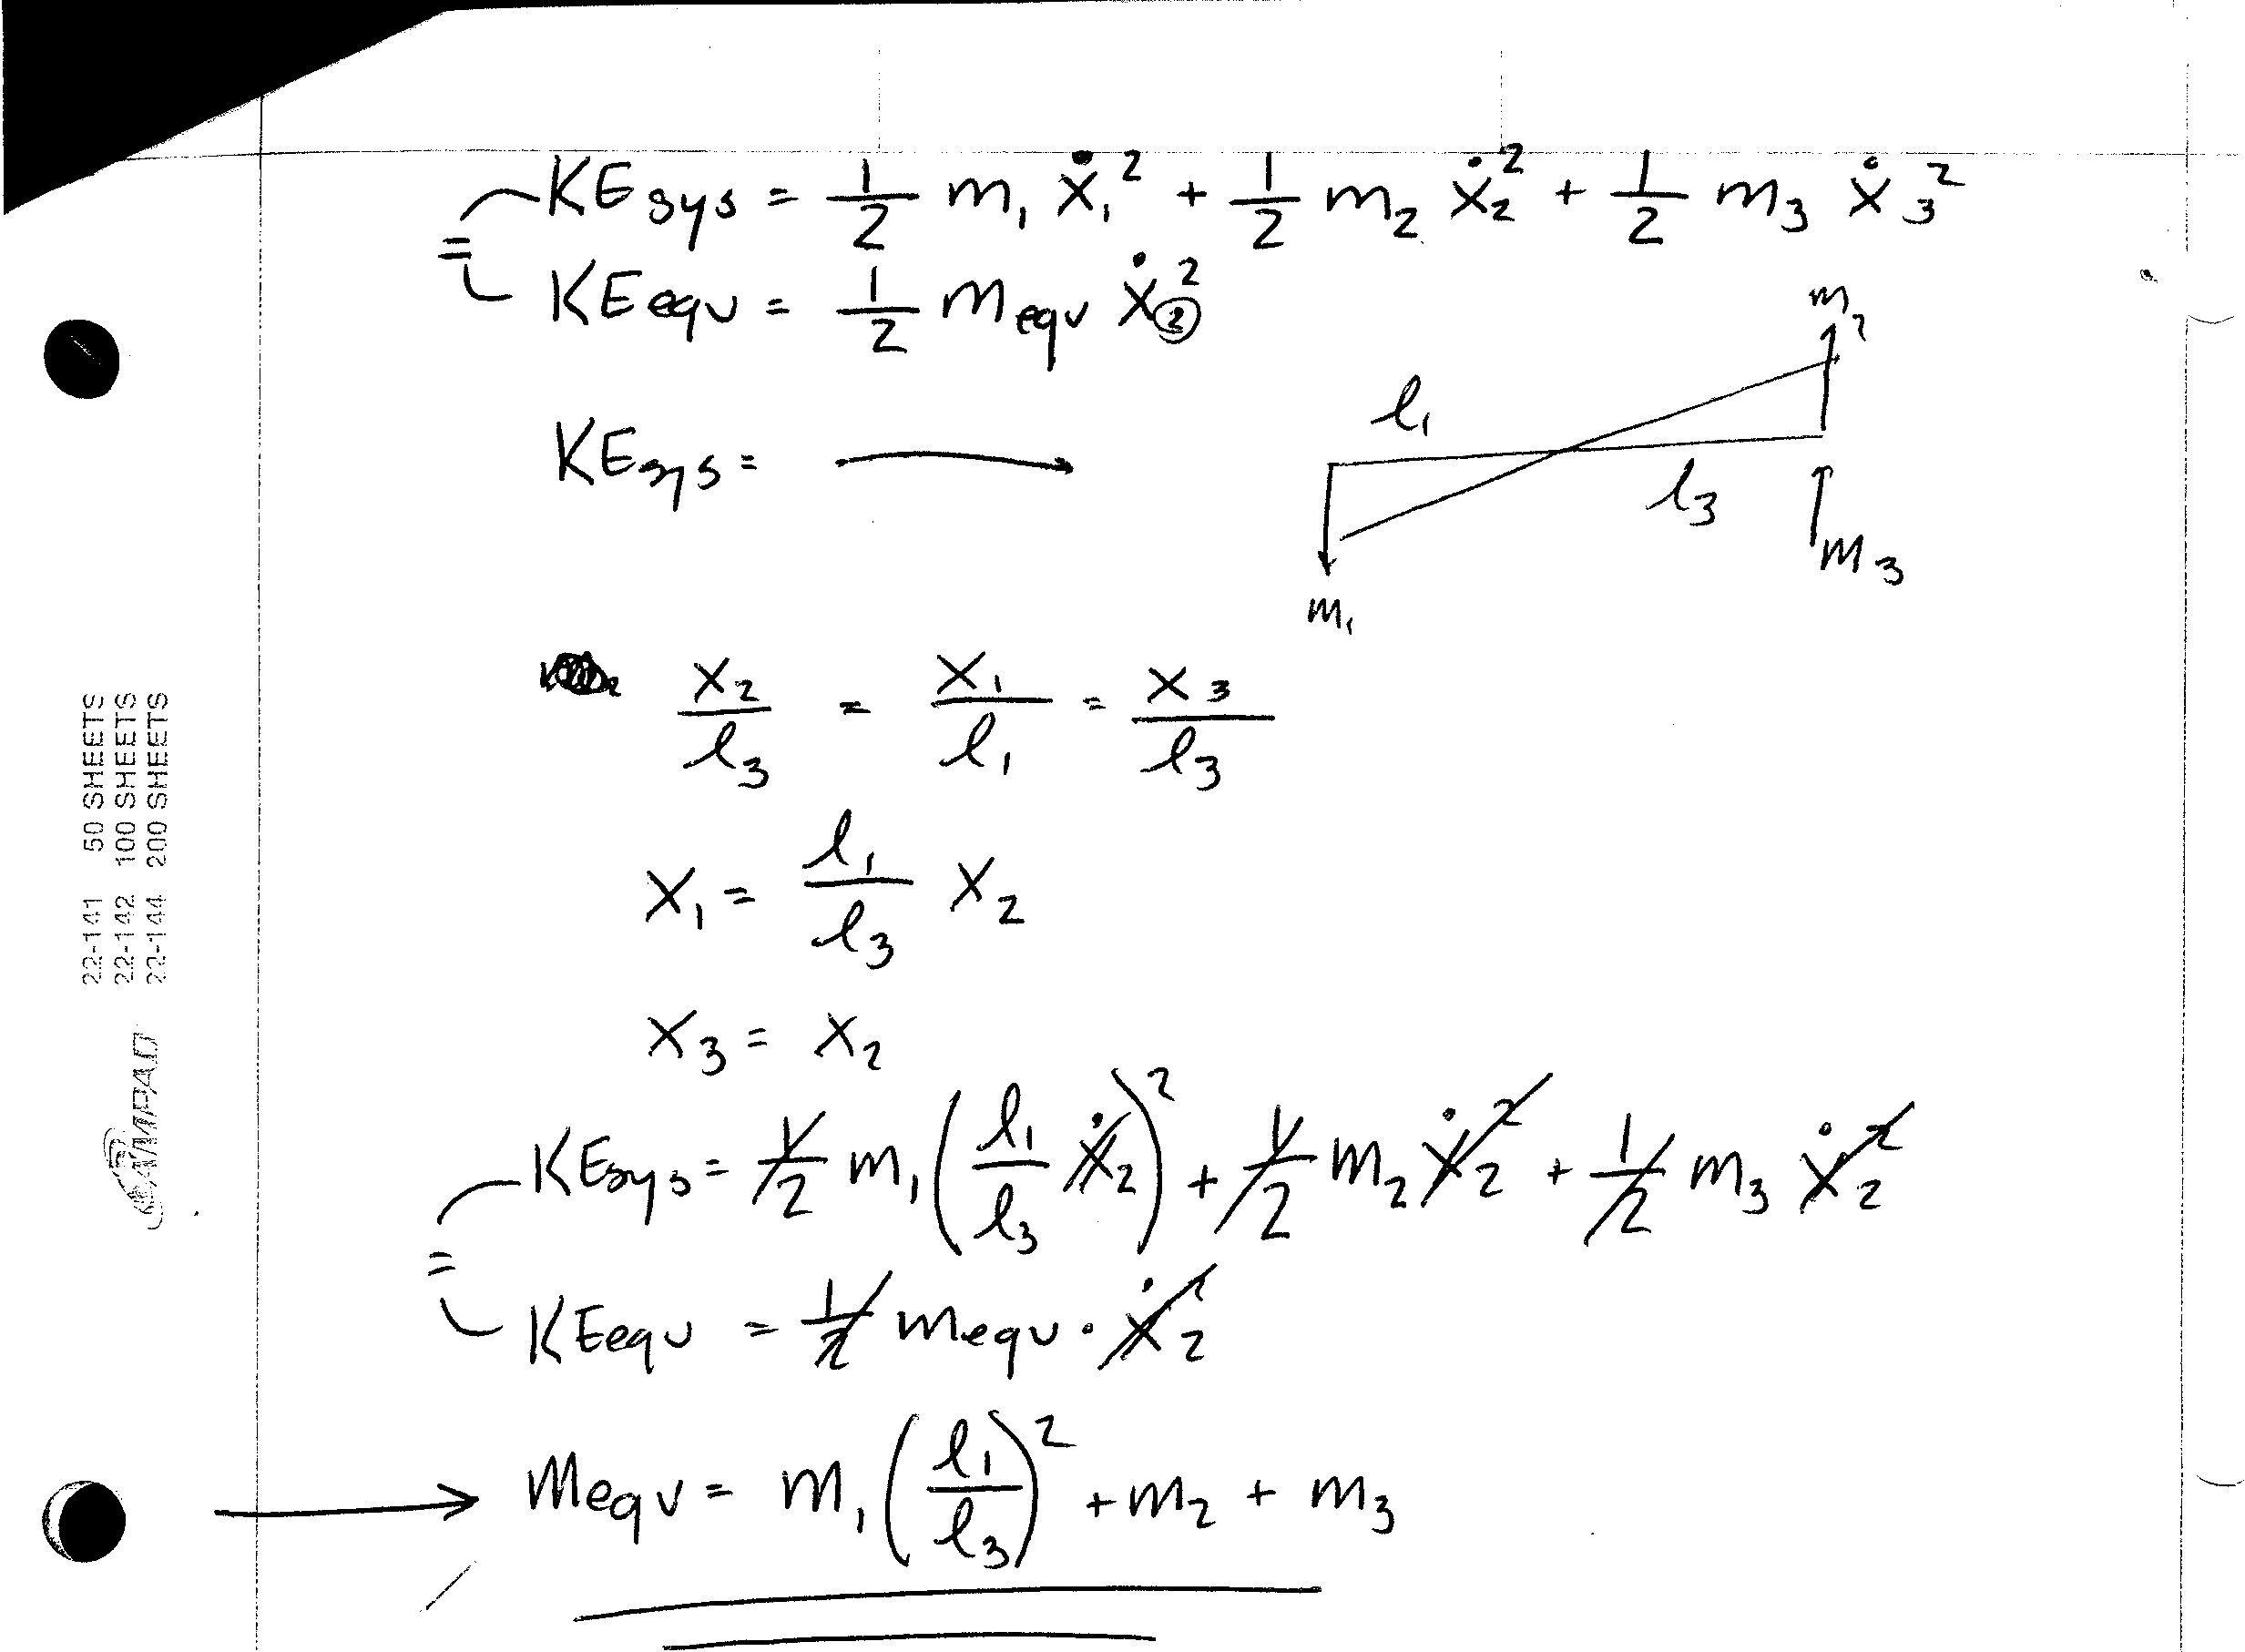 KEsys = 1/2 m₁ ẋ₁² + 1/2 m₂ ẋ₂² + 1/2 m₃ ẋ₃²
=
KEequ = 1/2 mequ ẋ₂²
m₂
l₁
KEsys = →
l₃
m₃
m₁
x₂/l₃ = x₁/l₁ = x₃/l₃
x₁ = l₁/l₃ x₂
x₃ = x₂
KEsys = 1/2 m₁ (l₁/l₃ ẋ₂)² + 1/2 m₂ ẋ₂² + 1/2 m₃ ẋ₂²
=
KEequ = 1/2 mequ · ẋ₂²
→ mequ = m₁ (l₁/l₃)² + m₂ + m₃
22-141 50 SHEETS
22-142 100 SHEETS
22-144 200 SHEETS
AMPAD